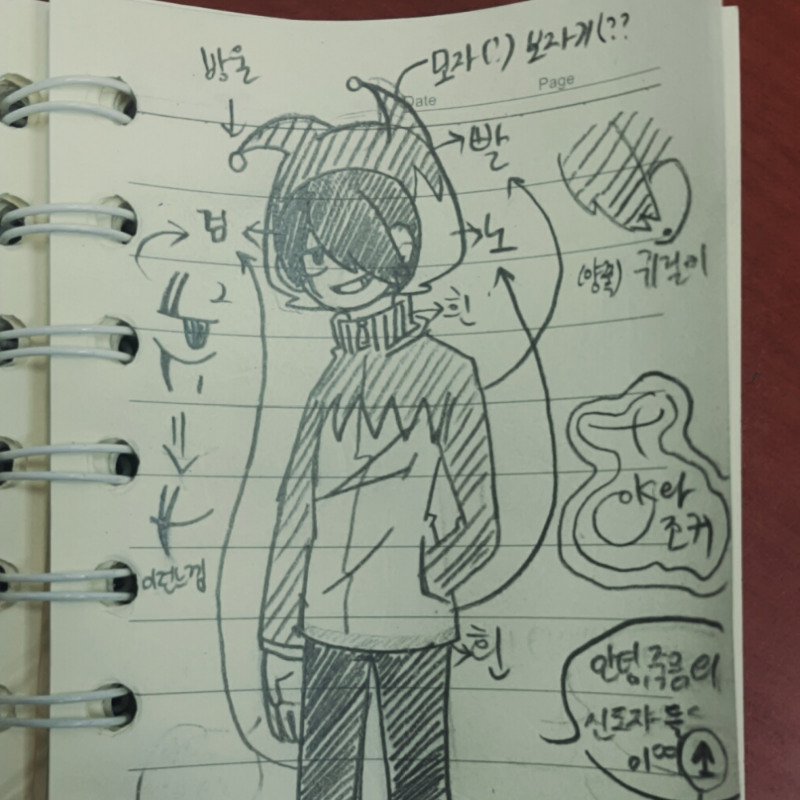 방울
모자(?) 보자기(??
Date
Page
빨
검
노
(양쪽) 귀걸이
흰
2
1
이런느낌
야 와
존귀
흰
안녕,죽음의
신도자